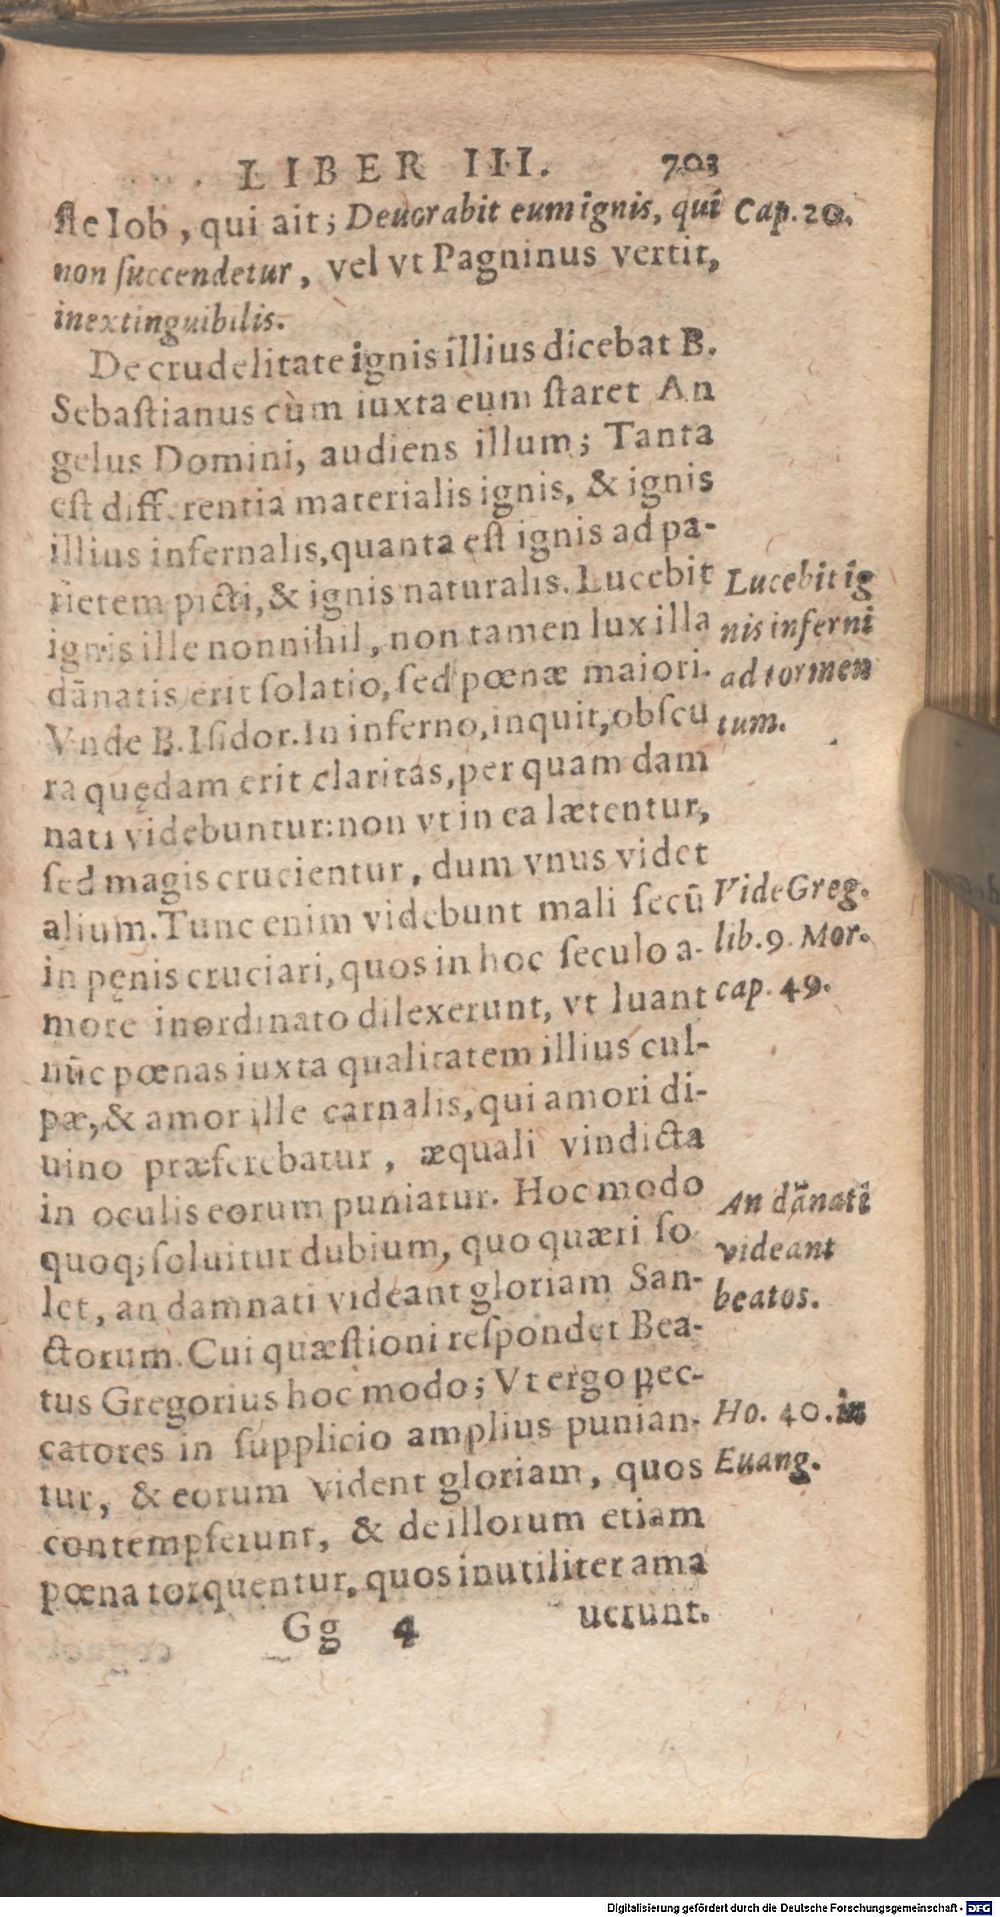 LIBER III. 703
ſte Iob, qui ait; Deuorabit eum ignis, qui
Cap. 20.
non ſuccendetur, vel vt Pagninus vertit,
inextinguibilis.
De crudelitate ignis illius dicebat B.
Sebaſtianus cùm iuxta eum ſtaret An
gelus Domini, audiens illum; Tanta
eſt differentia materialis ignis, & ignis
illius infernalis, quanta eſt ignis ad pa-
rietem picti, & ignis naturalis. Lucebit
ignis ille nonnihil, non tamen lux illa
dānatis erit ſolatio, ſed pœnæ maiori.
Vnde B. Iſidor. In inferno, inquit, obſcu
ra quędam erit claritas, per quam dam
nati videbuntur: non vt in ea lætentur,
ſed magis crucientur, dum vnus videt
alium. Tunc enim videbunt mali ſecū
in pęnis cruciari, quos in hoc ſeculo a-
more inordinato dilexerunt, vt luant
nūc pœnas iuxta qualitatem illius cul-
pæ, & amor ille carnalis, qui amori di-
uino præferebatur, æquali vindicta
in oculis eorum puniatur. Hoc modo
quoq; ſoluitur dubium, quo quæri ſo
let, an damnati videant gloriam San-
ctorum. Cui quæſtioni reſpondet Bea-
tus Gregorius hoc modo; Vt ergo pec-
catores in ſupplicio amplius punian-
tur, & eorum vident gloriam, quos
contempſerunt, & de illorum etiam
pœna torquentur, quos inutiliter ama
Lucebit ig
nis inferni
ad tormen
tum.
Vide Greg.
lib. 9. Mor.
cap. 49.
An dānati
videant
beatos.
Ho. 40. in
Euang.
Gg 4 uerunt.
Digitalisierung gefördert durch die Deutsche Forschungsgemeinschaft - DFG